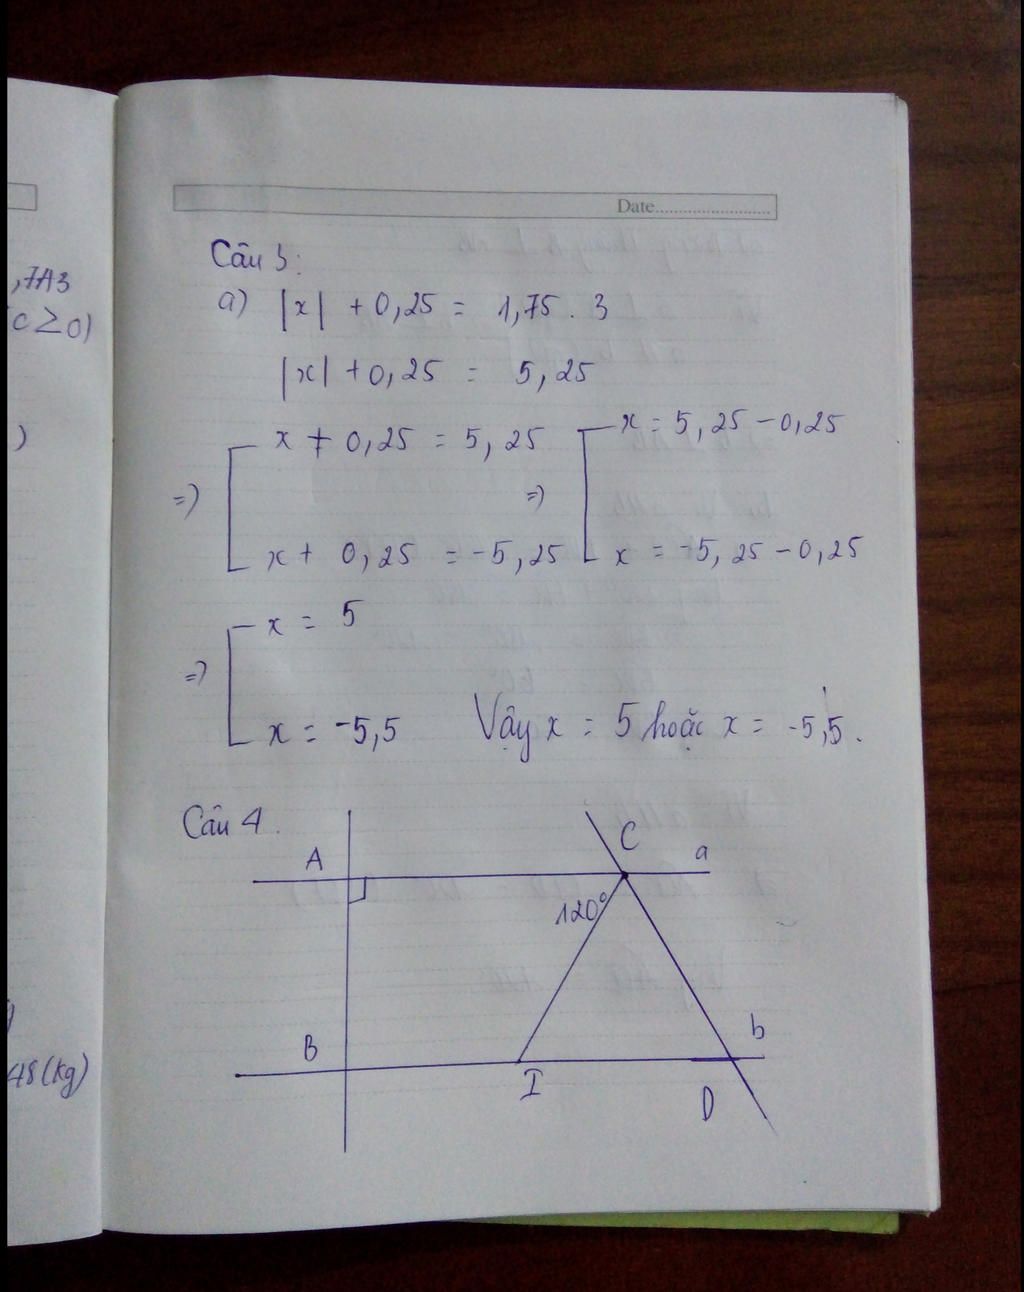 Date
,7A3
c ≥ 0)
)
48(kg)
Câu 3:
a) |x| + 0,25 = 1,75 . 3
|x| + 0,25 = 5,25
=> x + 0,25 = 5,25 => x = 5,25 - 0,25
x + 0,25 = -5,25 x = -5,25 - 0,25
=> x = 5
x = -5,5 Vậy x = 5 hoặc x = -5,5.
Câu 4.
A C a
120°
B I D b